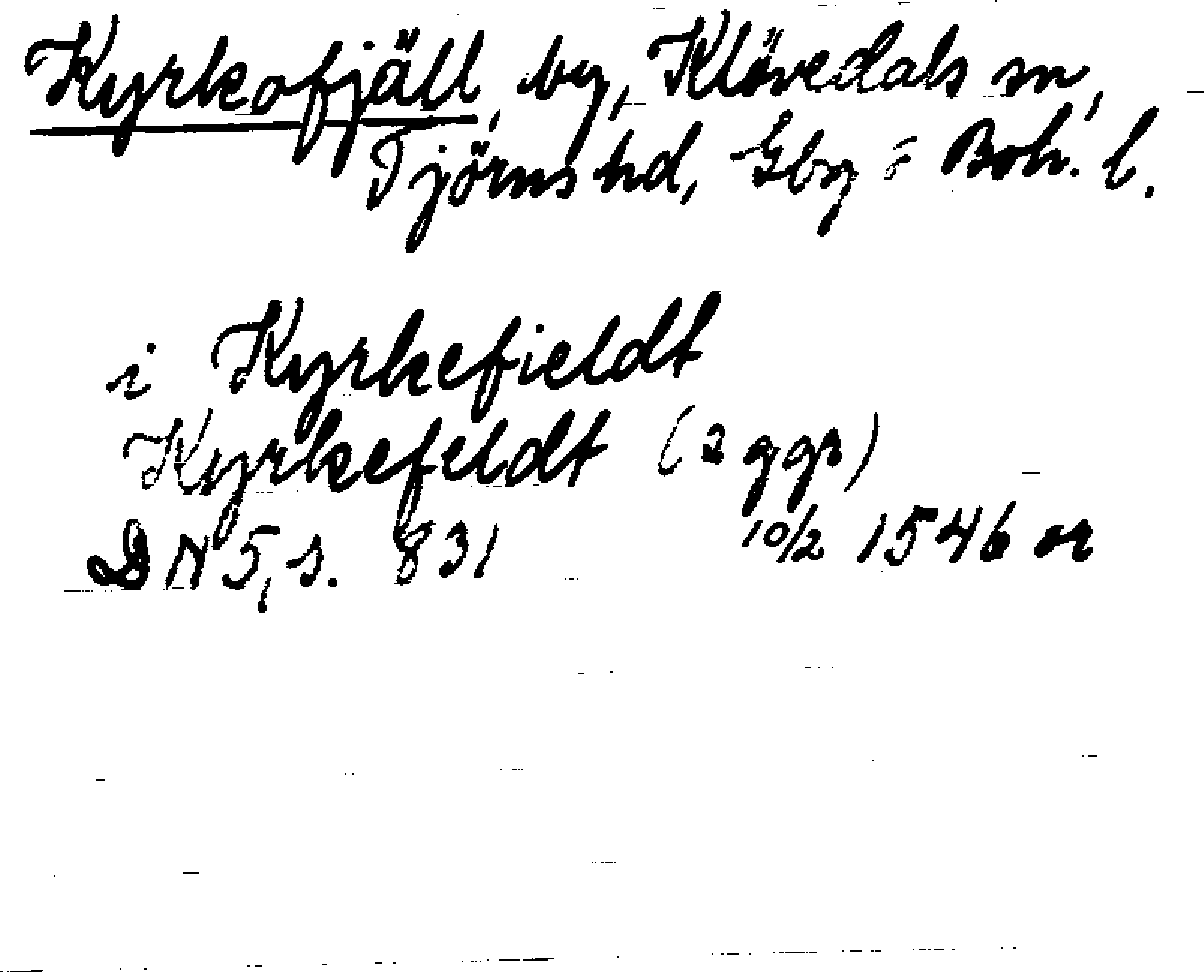 Kyrkofjäll, by, Klövedals sn,
Tjörns hd, Gbg o Boh. l.
i Kyrkefieldt
Kyrkefeldt (2 ggr)
DN 5, s. 831 10/2 1546 or